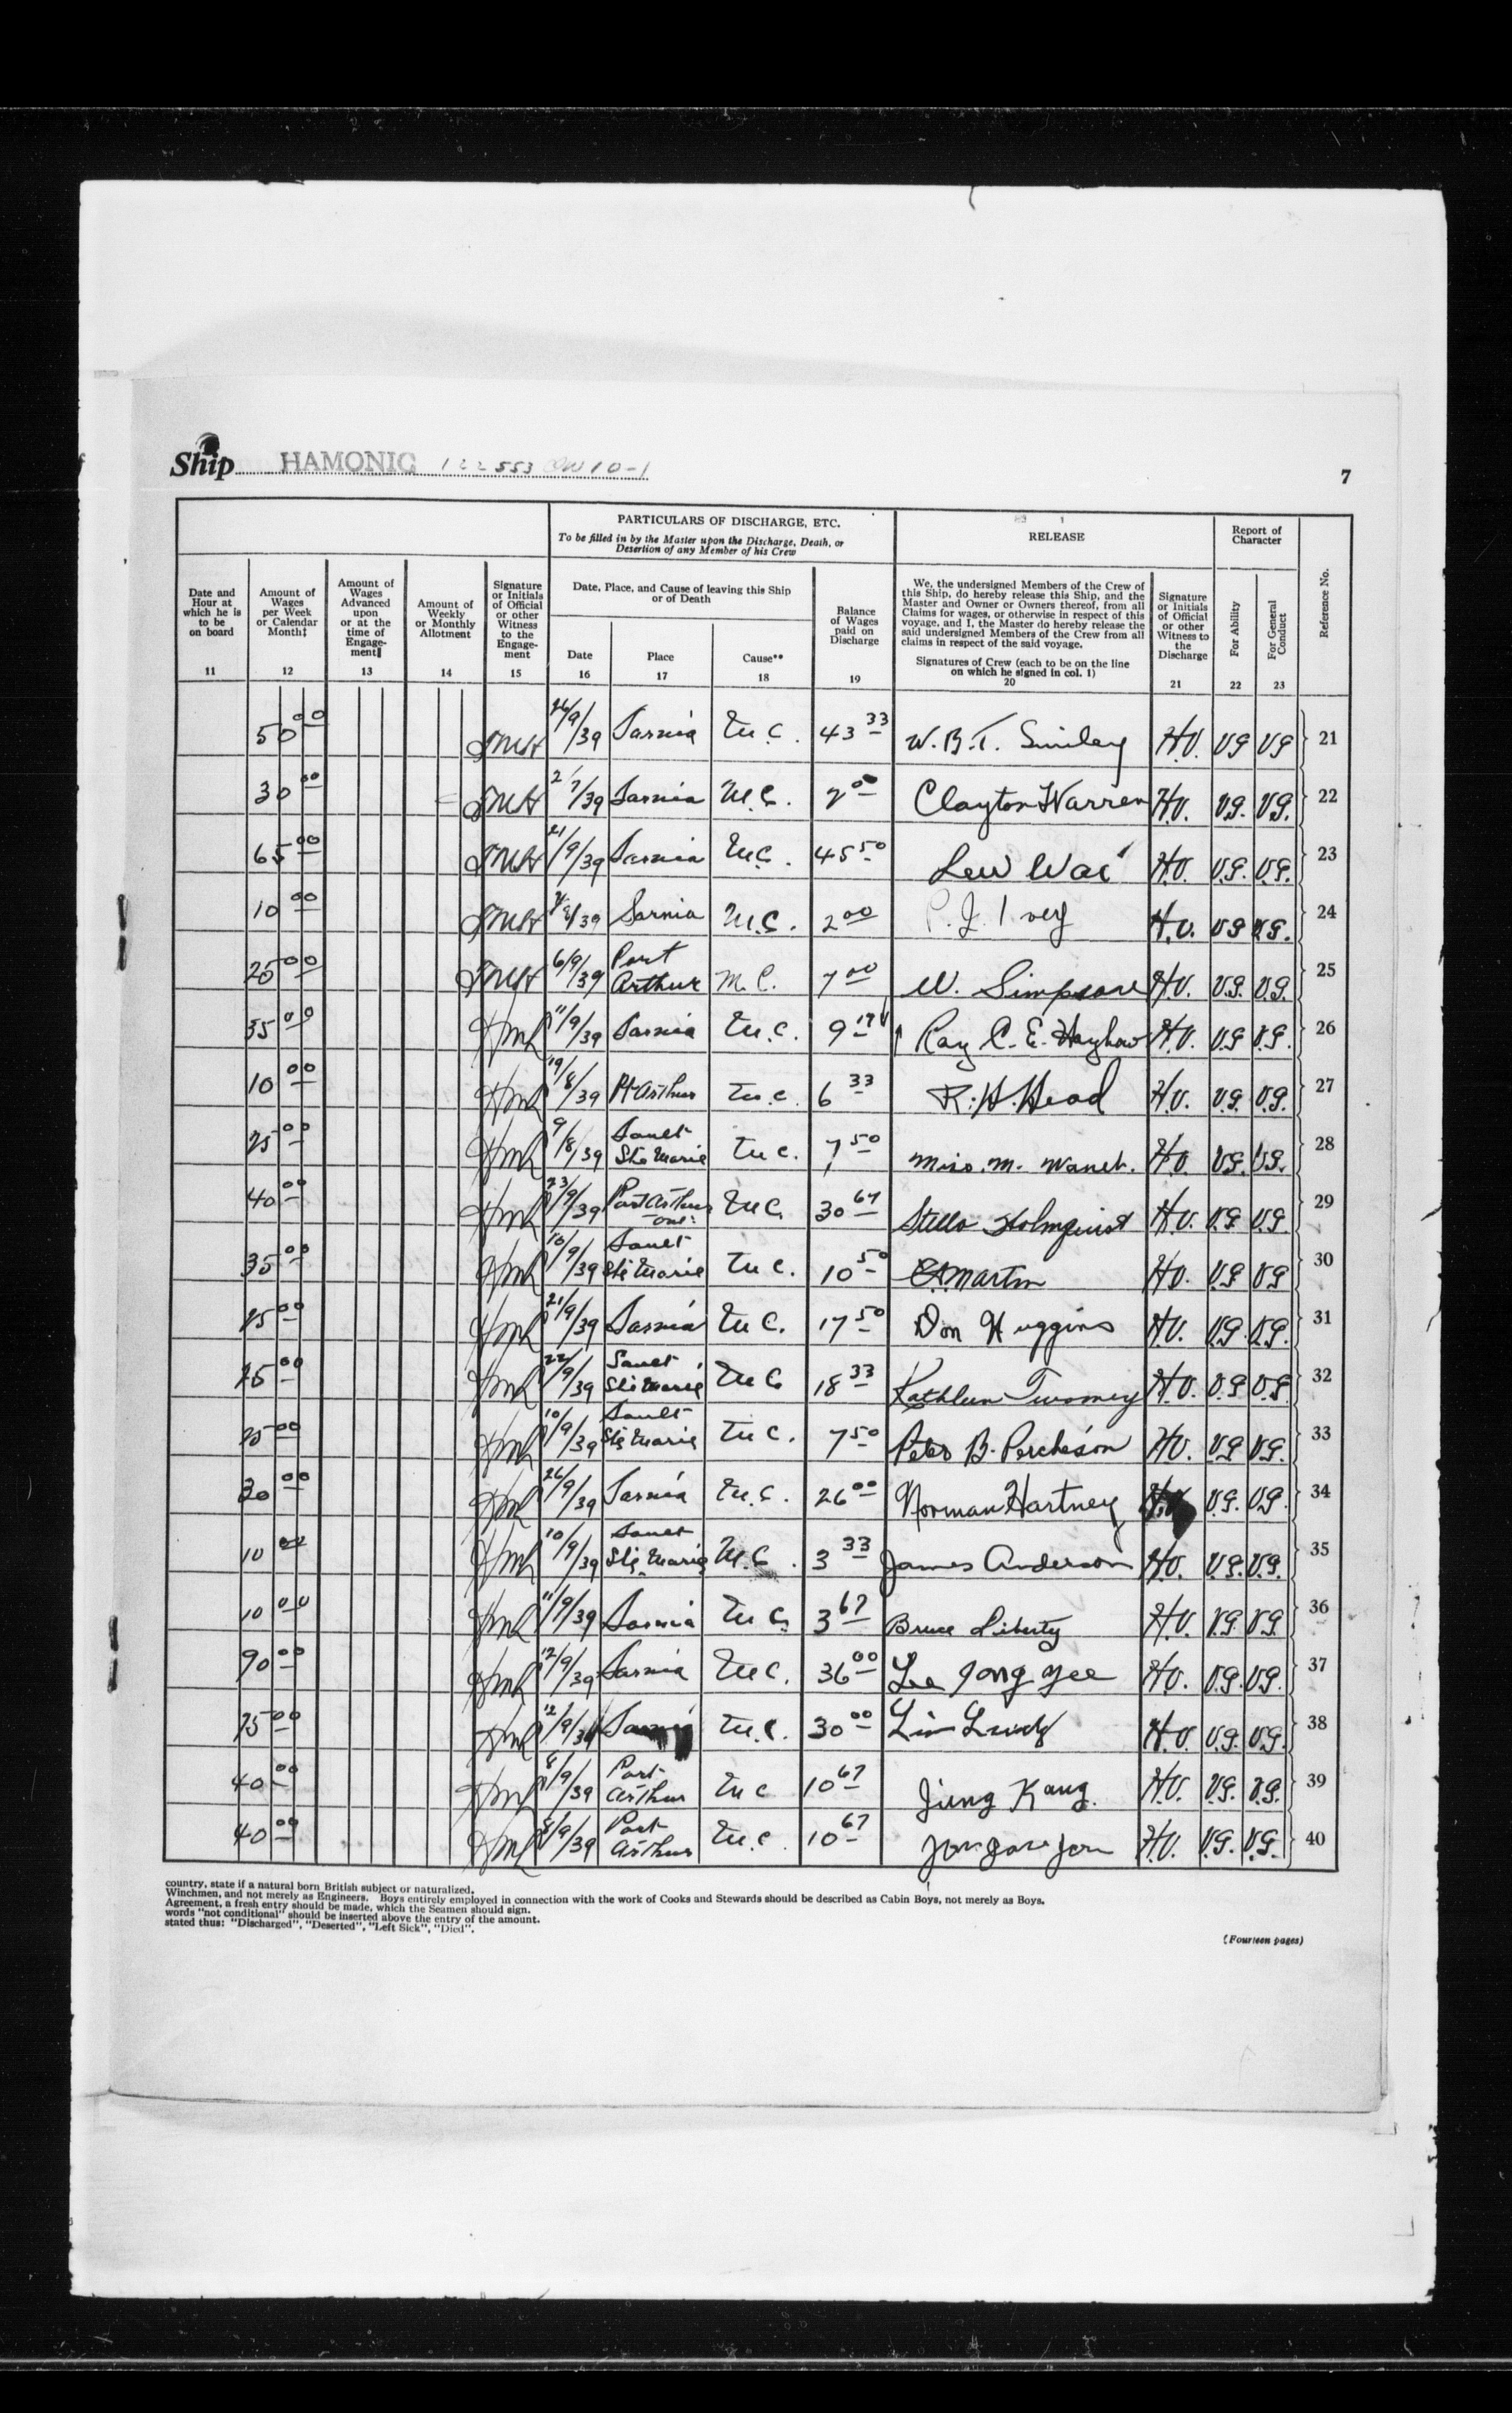 Ship HAMONIC 122553 10-1
7
PARTICULARS OF DISCHARGE, ETC.
To be filled in by the Master upon the Discharge, Death, or
Desertion of any Member of his Crew
RELEASE
Report of
Character
Date and
Hour at
which he is
to be
on board
11
Amount of
Wages
per Week
or Calendar
Month‡
12
Amount of
Wages
Advanced
upon
or at the
time of
Engage-
ment‖
13
Amount of
Weekly
or Monthly
Allotment
14
Signature
or Initials
of Official
or other
Witness
to the
Engage-
ment
15
Date, Place, and Cause of leaving this Ship
or of Death
Date
16
Place
17
Cause**
18
Balance
of Wages
paid on
Discharge
19
We, the undersigned Members of the Crew of
this Ship, do hereby release this Ship, and the
Master and Owner or Owners thereof, from all
Claims for wages, or otherwise in respect of this
voyage, and I, the Master do hereby release the
said undersigned Members of the Crew from all
claims in respect of the said voyage.
Signatures of Crew (each to be on the line
on which he signed in col. 1)
20
Signature
or Initials
of Official
or other
Witness to
the
Discharge
21
For Ability
22
For General
Conduct
23
Reference No.
50 00 26/9/39 Sarnia M.C. 43 33 W.B.T. Smiley H.V. VG VG 21
30 00 /39 Sarnia M.C. 2 00 Clayton Warren H.V. V.G. V.G. 22
65 00 21/9/39 Sarnia M.C. 45 50 Lew Wai H.V. V.G. V.G. 23
10 00 /39 Sarnia M.C. 2 00 P.J. Ivey H.V. VG V.G. 24
25 00 6/9/39 Port Arthur M.C. 7 00 W. Simpson H.V. V.G. V.G. 25
35 00 11/9/39 Sarnia M.C. 9 Ray C.E. H.V. V.G V.G. 26
10 00 19/8/39 Pt Arthur M.C. 6 33 R.H. Head H.V. V.G. V.G. 27
25 00 9/8/39 Sault Ste Marie M.C. 7 50 Miss. M. H.V. V.G. V.G. 28
40 00 23/9/39 Port Arthur Ont. M.C. 30 67 Stella Holmquist H.V. V.G V.G. 29
35 00 10/9/39 Sault Ste Marie M.C. 10 50 Martin H.V. V.G V.G 30
25 00 21/9/39 Sarnia M.C. 17 50 Don Huggins H.V. V.G. V.G. 31
25 00 22/9/39 Sault Ste Marie M.C. 18 33 Kathleen Twomey H.V. V.G V.G 32
25 00 10/9/39 Sault Ste Marie M.C. 7 50 Peter B. H.V. V.G V.G. 33
30 00 26/9/39 Sarnia M.C. 26 00 Norman Hartney V.G. V.G. 34
10 00 10/9/39 Sault Ste. Marie M.C. 3 33 James Anderson H.V. V.G. V.G. 35
10 00 11/9/39 Sarnia M.C. 3 67 Bruce Liberty H.V. V.G V.G. 36
90 00 12/9/39 Sarnia M.C. 36 00 Lee Jong Yee H.V. V.G. V.G. 37
75 00 12/9/39 Sarnia M.C. 30 00 H.V. V.G. V.G. 38
40 00 8/9/39 Port Arthur M.C. 10 67 Jung Kang. H.V. V.G. V.G. 39
40 00 8/9/39 Port Arthur M.C. 10 67 H.V. V.G. V.G. 40
country, state if a natural born British subject or naturalized.
Winchmen, and not merely as Engineers. Boys entirely employed in connection with the work of Cooks and Stewards should be described as Cabin Boys, not merely as Boys.
Agreement, a fresh entry should be made, which the Seamen should sign.
words "not conditional" should be inserted above the entry of the amount.
stated thus: "Discharged", "Deserted", "Left Sick", "Died".
(Fourteen pages)